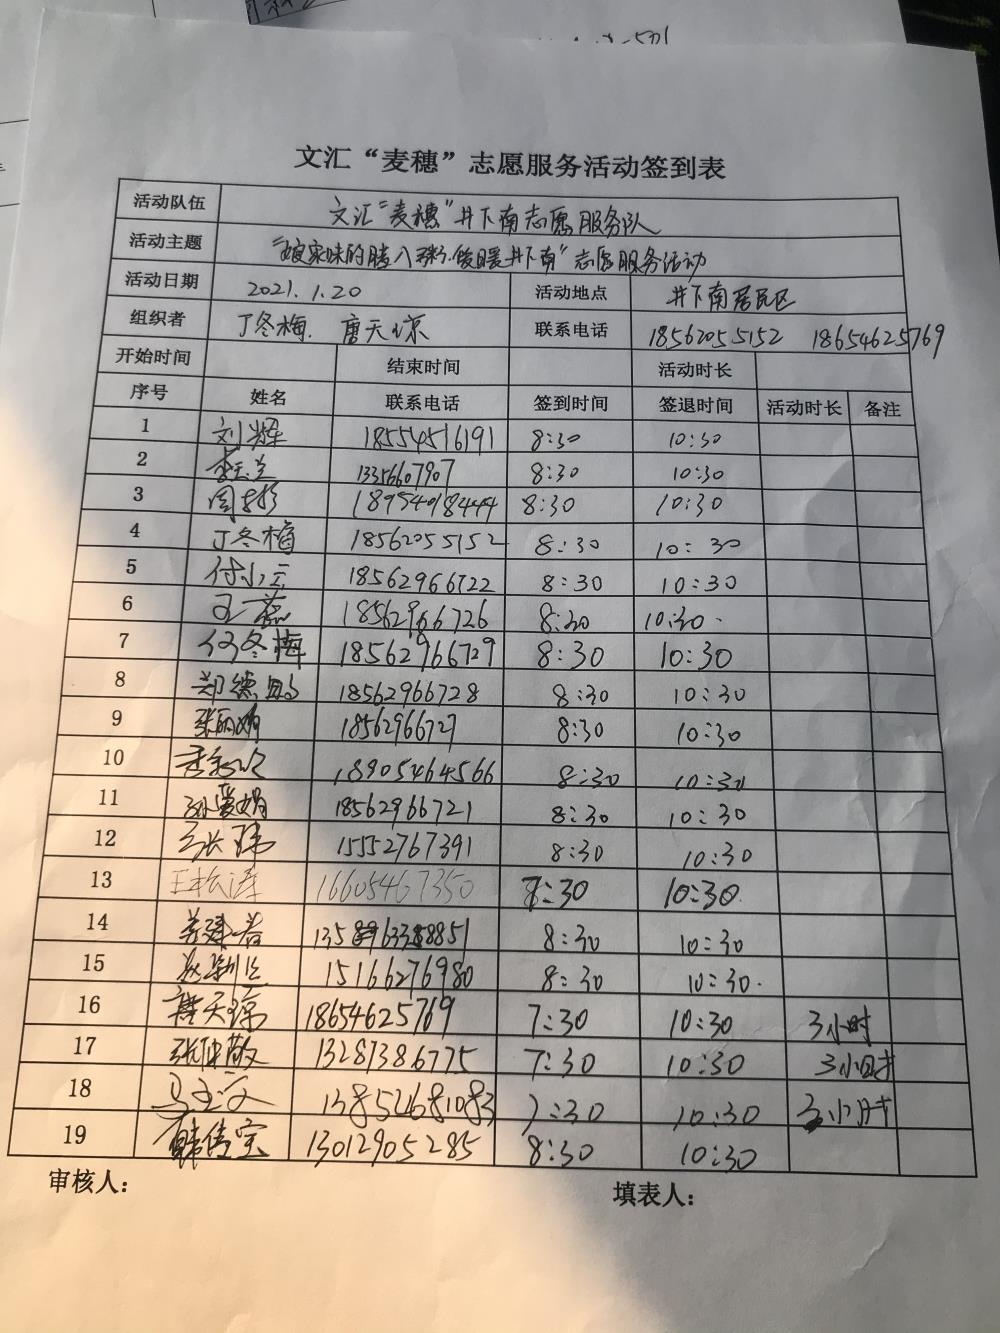 文汇“麦穗”志愿服务活动签到表
活动队伍 文汇“麦穗”井下南志愿服务队
活动主题 “娘家味的腊八粥, 暖井下南”志愿服务活动
活动日期 2021.1.20 活动地点 井下南居民区
组织者 丁冬梅. 唐天琼 联系电话 18562055152 18654625769
开始时间 结束时间 活动时长
序号 姓名 联系电话 签到时间 签退时间 活动时长 备注
1 刘辉 18554516191 8:30 10:30
2 13356607907 8:30 10:30
3 18954018444 8:30 10:30
4 丁冬梅 18562055152 8:30 10:30
5 付小云 18562966722 8:30 10:30
6 王一磊 18562966726 8:30 10:30.
7 何冬梅 18562966729 8:30 10:30
8 郑德鹏 18562966728 8:30 10:30
9 张丽娟 18562966727 8:30 10:30
10 18905464566 8:30 10:30
11 孙爱娟 18562966721 8:30 10:30
12 15552767391 8:30 10:30
13 王松涛 16605467350 10:30
14 8:30 10:30
15 15166276980 8:30 10:30.
16 唐天琼 18654625769 7:30 10:30 3小时
17 13287386775 7:30 10:30 3小时
18 13852681083 7:30 10:30 3小时
19 韩传宝 13012905285 8:30 10:30
审核人： 填表人：